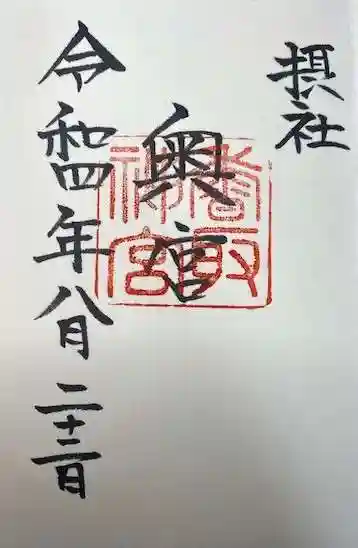 摂社
奥宮
香取神宮
令和四年八月二十二日